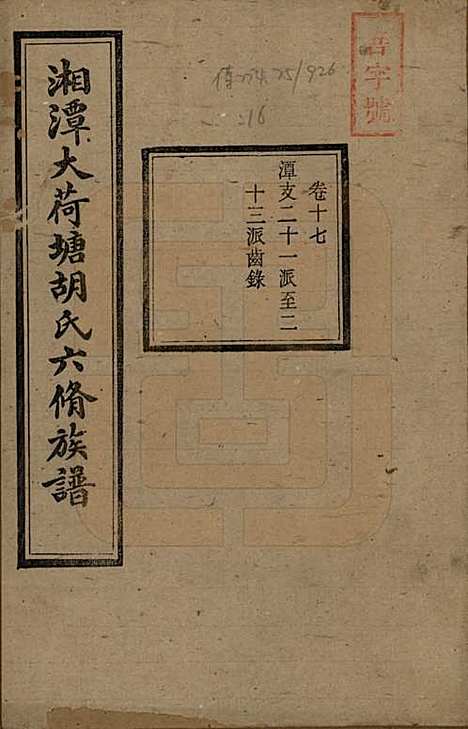 湘潭大荷塘胡氏六脩族譜
卷十七
潭支二十一派至二
十三派齒錄
字號
925/926
16